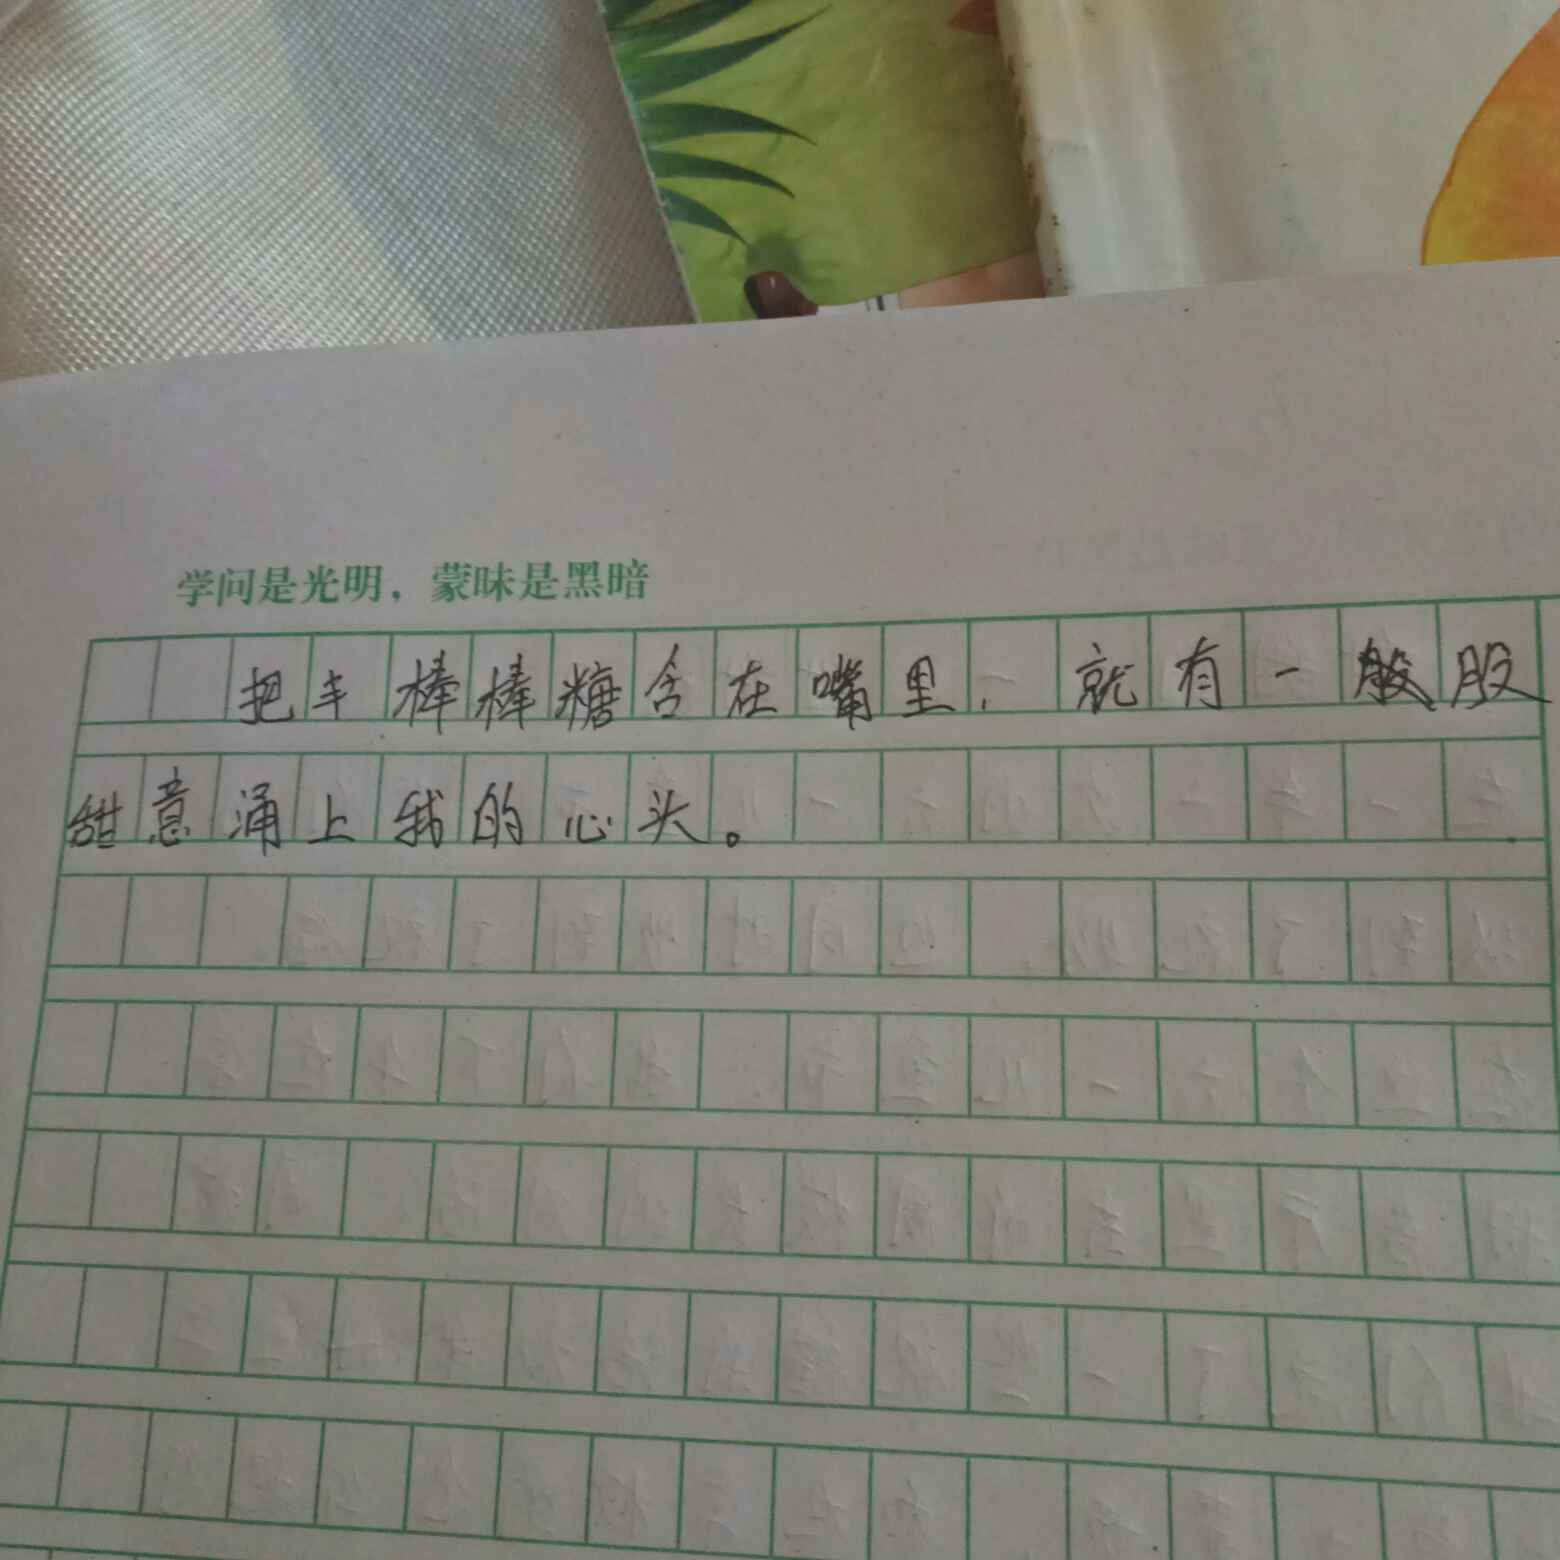 学问是光明，蒙昧是黑暗
把丰棒棒糖含在嘴里，就有一股
甜意涌上我的心头。